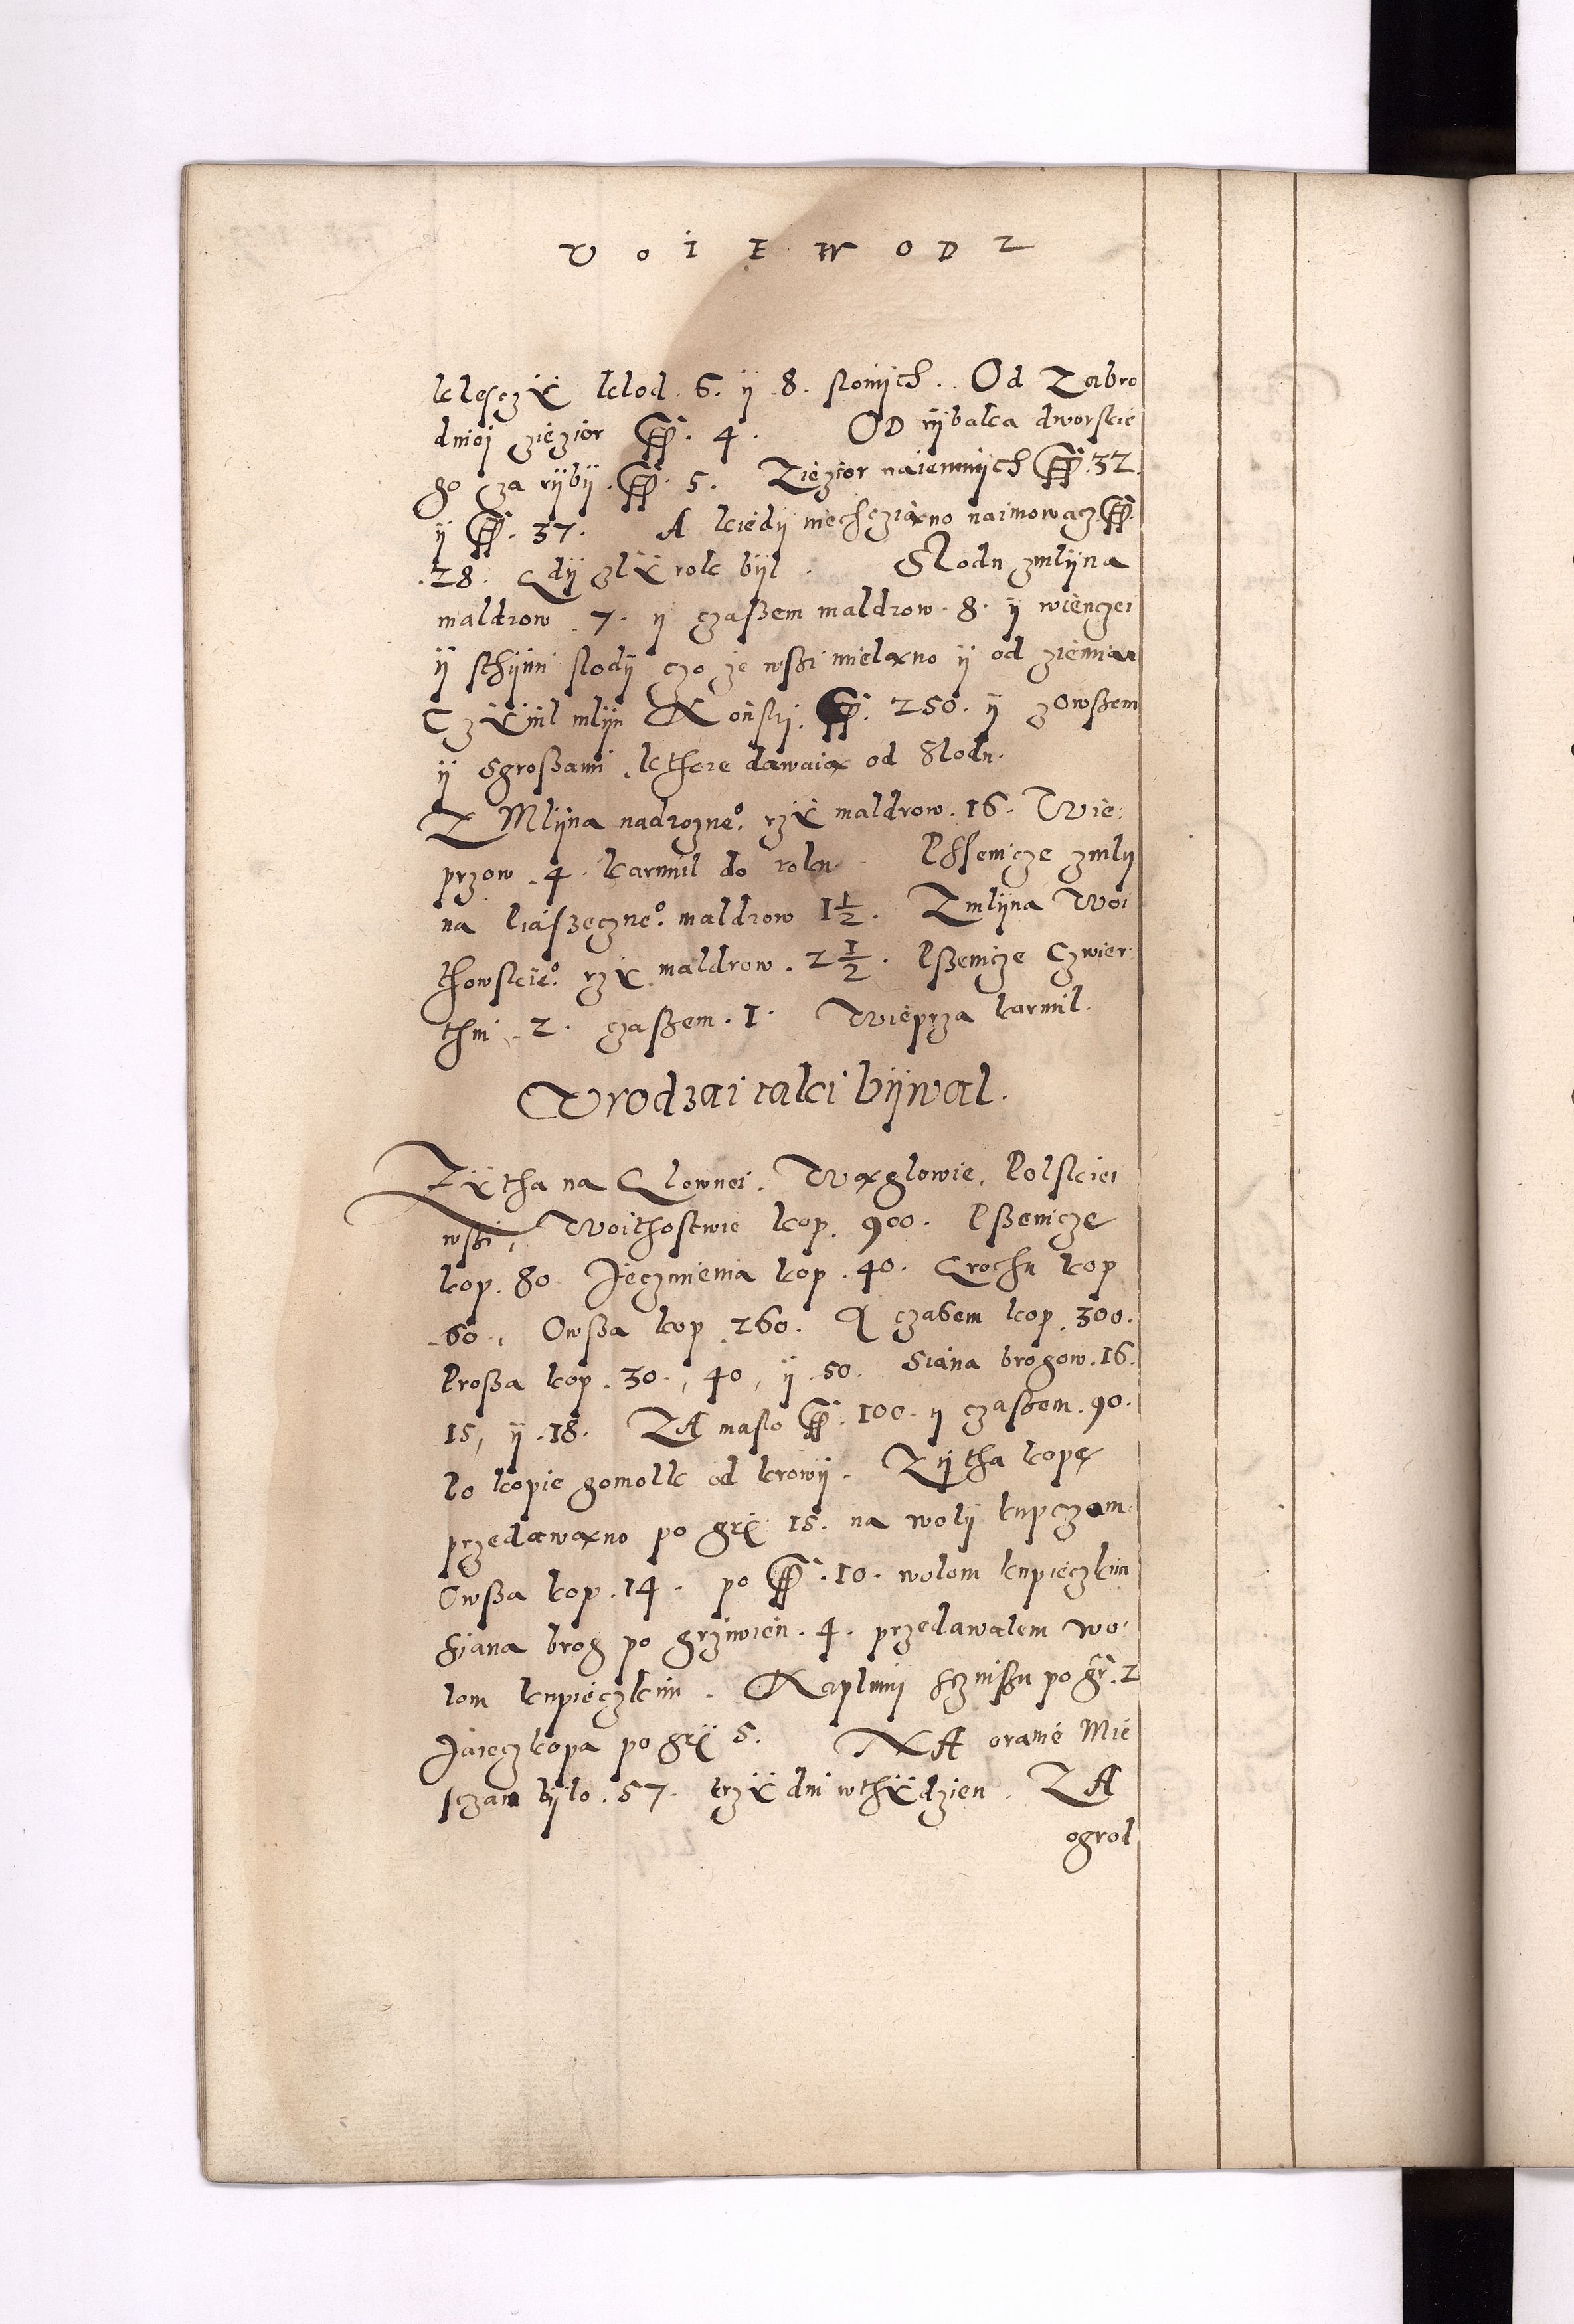 VOIEWODZ
kleſczÿ klod . 6 . ÿ . 8 . ſlonÿch . Od Zabro
dniej zieziór ff . 4 . OD rÿbaka dworſkie
go za rÿbÿ . ff . 5 . Ziezior naiemnÿch ff . 32 .
ÿ ff . 37 . A kiedÿ niechcziąno naimowacz ff .
. 28 . Gdÿ zlÿ rok bÿl . Slodu zmlÿna
maldrow . 7 . ÿ czaßem maldrow . 8 . ÿ wienczei
ÿ ſthÿmi ſlodÿ czo ze wßi mieląno ÿ od ziemian
Czÿnil mlÿn Końſki . ff . 250 . ÿ zOwßem
ÿ Sgroßami , kthore dawaią od Slodu .
Z Mlÿna nadrozneº . rzÿ maldrow . 16 . Wie
przow . 4 . karmil do roku . Pſſenicze zmlÿ
na Piaſzeczneº . maldrow 1 1/2 . Zmlÿna Woi
thowſkieº . rzÿ maldrow . 2 1/2 . Pßenicze Czwier
thni . 2 . czaßem . 1 . Wieprza karmil .
Vrodzai iaki bÿwal .
Zÿtha na Glownei . Wąglowie , Polſkiei
wßi , Woithoſtwie kop . 900 . Pßenicze
kop . 80 Jeczmienia kop . 40 . Grochu kop
. 60 . , Owßa kop . 260 . A czaßem kop . 300 .
Proßa kop . 30 . , 40 , ÿ . 50 . Siana brogow . 16 .
15 , ÿ . 18 . ZA maſlo ff . 100 . ÿ czaßem . 90 .
Po kopie gomolk od krowÿ . Zÿtha kopę
przedawąno po grÿ 15 . na wolÿ kupczom
Owßa kop . 14 . po ff . 10 . wolom kupieczkim
Siana brog po grzÿwien . 4 . przedawalem wo
lom kupieczkim . Kaplunÿ Sczinßu po gr . 2
Jaiecz kopa po grÿ 5 . NA oranie Mie
ſczan bÿlo . 57 . trzÿ dni wthÿdzien . ZA
ogrod